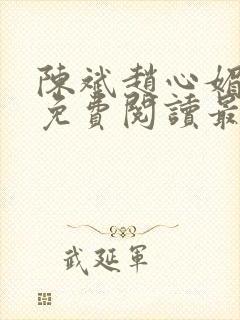 陳斌趙心媚
免費閱讀最
武延軍